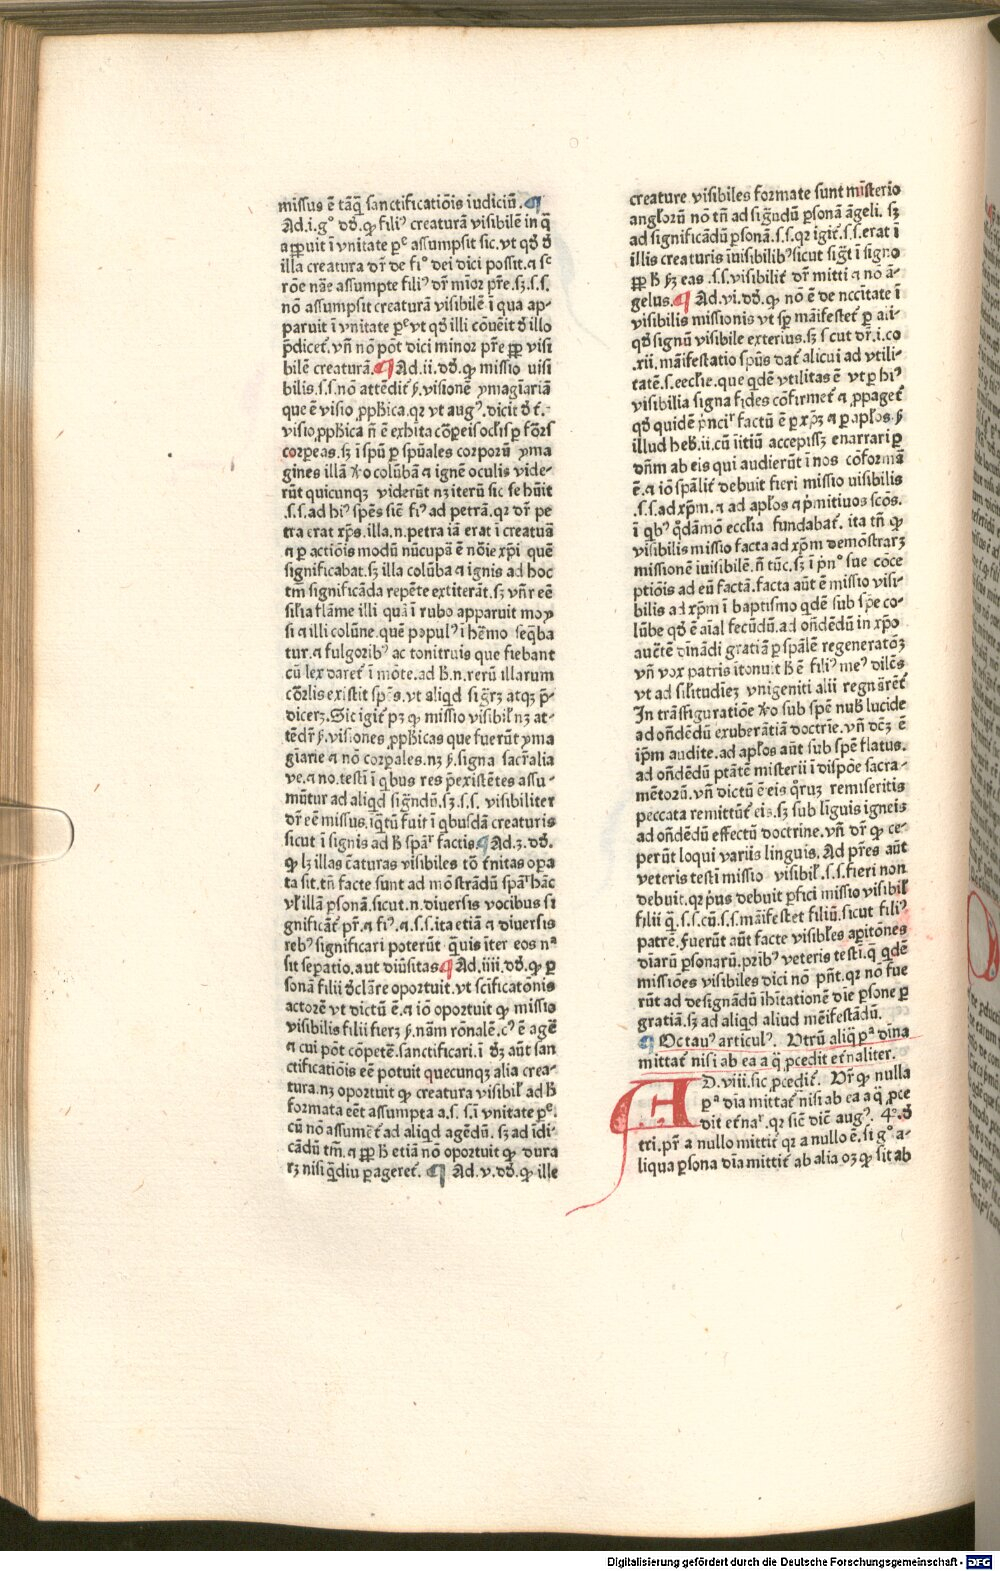 missus ē tāq̄ sanctificatiōis iudiciū. ¶
Ad .i. gº dō. ꝙ filiꝰ creaturā visibilē in q̄
apparuit ī vnitate pᵉ assumpsit sic. vt qđ đ
illa creatura dr̄ de fiº dei dici possit. ⁊ sᶜ
rōe nāe assumpte filiꝰ dr̄ mīor pr̄e. sꝫ .s.s.
nō assumpsit creaturā visibilē ī qua ap-
paruit ī vnitate pᵉ vt qđ illi cōueīt đ illo
p̄dicet᷑. vn̄ nō pōt dici minor pr̄e ꝓp visi
bilē creaturā. ¶ Ad .ii. dō. ꝙ missio uisi
bilis .s.s. nō attēdit᷑ ẜ. visionē ymagīariā
que ē visio ꝓph̄ica. qꝛ vt augꝰ. dicit đ t̄.
visio ꝓph̄ica n̄ ē exhita cōꝑeis oclis ꝑ forͣs
corꝑeas. sꝫ ī spū ꝑ spūales corporū yma
gines illā ꝟo colūbā ⁊ ignē oculis vide-
rūt quicunqꝫ viderūt nꝫ iterū sic se hūit
.s.s. ad hiꝰ spēs siē fiꝰ ad petrā. qꝛ dr̄ pe
tra erat xp̄s. illa .n. petra iā erat ī creatura
⁊ ꝑ actiōis modū nūcupā ē nōie xp̄i quē
significabat. sꝫ illa colūba ⁊ ignis ad hoc
tm̄ significāda repēte extiterāt. sꝫ vn̄r eē
silia flāme illi qua ī rubo apparuit moy
si ⁊ illi colūne. quē populꝰ ī h̄emo seq̄ba
tur. ⁊ fulgoribꝰ ac tonitruis que fiebant
cū lex daret᷑ ī mōte. ad h̄ .n. rerū illarum
cōrlis existit spēs. vt aliqd sigr̄ꝫ atqꝫ p̄-
dicerꝫ. Sic igit᷑ pꝫ ꝙ missio visibil̄ nꝫ at-
tēdr̄ ẜ. visiones ꝓph̄icas que fuerūt yma
gīarie ⁊ nō corꝑales. nꝫ ẜ. signa sacr̄alia
ve. ⁊ no. testī ī qbus res p̄existētes assu-
mūtur ad aliqd sign̄dū. sꝫ .s.s. visibiliter
dr̄ eē missus. īq̄tū fuit ī qbusdā creaturis
sicut ī signis ad h̄ spāl̄r factis ¶ Ad .3. dō.
ꝙ lꝫ illas c̄aturas visibiles tō t̄nitas oꝑa
ta sit. tn̄ facte sunt ad mōstrādū spāl̄r hāc
vl̄ illā ꝑsonā. sicut .n. diuersis vocibus si
gnificāt᷑ pr̄. ⁊ fiꝰ. ⁊ .s.s. ita etiā ⁊ diuersis
rebꝰ significari poterūt q̄uis īter eos nᵃ
sit seꝑatio. aut diūsitas ¶ Ad .iiii. dō. ꝙ ꝑ
sonā filii đclāre oportuit. vt scificatōnis
actorē vt dictū ē. ⁊ iō oportuit ꝙ missio
visibilis filii fierꝫ ẜ. nām rōnalē. cꝰ ē agē
⁊ cui pōt cōpetē. sanctificari. ī đ aūt san
ctificatiōis eē potuit quecunqꝫ alia crea-
tura. nꝫ oportuit ꝙ creatura visibil̄ ad h̄
formata eēt assumpta a .s. s. ī vnitate pᵉ.
cū nō assumēt᷑ ad aliqd agēdū. sꝫ ad īdi-
cādū tm̄. ⁊ ꝓp h̄ etiā nō oportuit ꝙ dura
rꝫ nisi q̄diu ꝑageret᷑. ¶ Ad .v. dō. ꝙ ille
creature visibiles formate sunt mīsterio
angl̄orū nō tn̄ ad sign̄dū ꝑsonā āgeli. sꝫ
ad significādū ꝑsonā .s.s. qꝛ igit᷑ .s.s. erat ī
illis creaturis īuisibilibꝰ sicut sig̅t ī signo
ꝓp h̄ ẜꝫ eas .s.s. visibilit᷑ dr̄ mitti ⁊ nō ā-
gelus. ¶ Ad .vi. dō. ꝙ nō ē de nccītate ī
visibilis missionis vt sp̄ māifestet᷑ ꝑ ali-
qđ signū visibile exterius. sꝫ sicut dr̄ .i. co
.xii. māifestatio spūs dat᷑ alicui ad vtili-
tatē .s. ecclie. que qdē vtilitas ē vt ꝑ hiꝰ
visibilia signa fides cōfirmet᷑ ⁊ ꝓpaget᷑
qđ quidē p̄ncil̄r factū ē ꝑ xp̄ꝫ ⁊ ꝑ aplos. ẜ
illud heb̄ .ii. cū īitiū accepissꝫ enarrari ꝑ
dn̄m ab eis qui audierūt ī nos cōformā
ē. ⁊ iō spālit᷑ debuit fieri missio uisibilis
.s.s. ad xp̄m. ⁊ ad aplos ⁊ p̄mitiuos scōs.
ī qbꝰ qdāmō ecclia fundabat᷑. ita tn̄ ꝙ
visibilis missio facta ad xp̄m demōstrarꝫ
missionē iuisibilē. n̄ tūc. sꝫ ī p̄nº sue cōce
ptiōis ad eū factā. facta aūt ē missio visi-
bilis ad xp̄m ī baptismo qdē sub spē co-
lūbe qđ ē aīal fecūdū. ad on̄dēdū in xp̄o
auc̄tē dīnādi gratiā ꝑ spālē regeneratōꝫ
vn̄ vox patris ītonuit h̄ ē filiꝰ meꝰ dilēs
vt ad silitudieꝫ vnigeniti alii regnarēt᷑
In trāsfiguratiōe ꝟo sub spē nub̄ lucide
ad on̄dēdū exuberātiā doctrīe. vn̄ dc̄ꝫ ē
ip̄m audite. ad aplos aūt sub spē flatus.
ad on̄dēdū ptātē misterii ī dispōe sacra-
mētorū. vn̄ dictū ē eis qͦruꝫ remiseritis
peccata remittūt᷑ eis. sꝫ sub līguis igneis
ad on̄dēdū effectū doctrine. vn̄ dr̄ ꝙ ce-
perūt loqui variis linguis. Ad pr̄es aūt
veteris testī missio visibil̄ .s.s. fieri non
debuit. qꝛ pͥus debuit ꝑfici missio visibil̄
filii q̄ .s.s. cū .s.s. māifestet filiū. sicut filiꝰ
patrē. Fuerūt aūt facte visibl̄es apitōnes
dīarū ꝑsonarū. pͥribꝰ veteris testī. q̄ qdē
missiōes visibiles dici nō pn̄t. qꝛ nō fue
rūt ad designādū īhītationē dīe ꝑsone ꝑ
gratiā. sꝫ ad aliqd aliud mēifestādū.
¶ Octauꝰ articulꝰ. Vtrū aliq̄ pᵃ dīna
mittat᷑ nisi ab ea a q̄ ꝓcedit et̄naliter.
AD .viii. sic ꝓcedit᷑. Vr̄ ꝙ nulla
pᵃ dīa mittat᷑ nisi ab ea a q̄ ꝓce
dit et̄nal̄. qꝛ siē dic̄ augꝰ. 4º. đ
tri. pr̄ a nullo mittit᷑ qꝛ a nullo ē. si gº a-
liqua ꝑsona dīa mittit᷑ ab alia oꝫ ꝙ sit ab
Digitalisierung gefördert durch die Deutsche Forschungsgemeinschaft - DFG